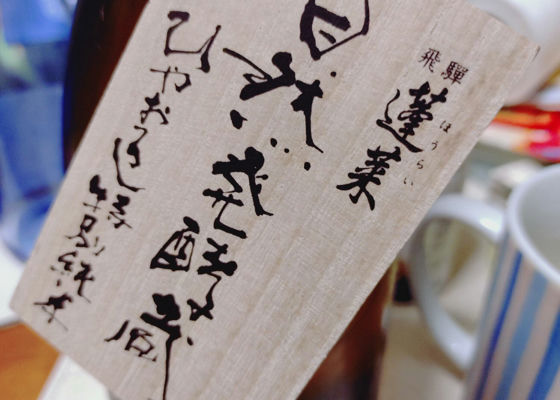 飛騨
蓬莱
ほうらい
自然発酵蔵
ひやおろし特別純米